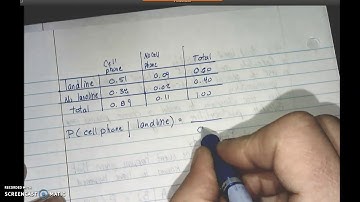 Cell phone No Cell phone Total
landline 0.51 0.09 0.60
No landline 0.38 0.02 0.40
Total 0.89 0.11 1.00
P(cell phone | landline) =
RECORDED WITH
SCREENCAST MATIC